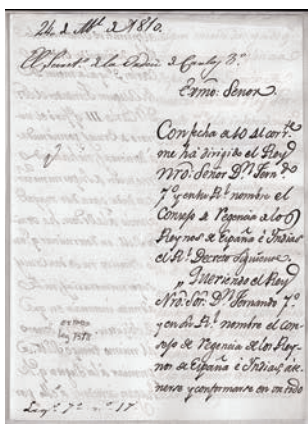 24 de Mzo. de 1810.
El Secret.o de la Orden de Carlos 3.o
Exmo. Señor
Con fecha de 10 del corr.te
me ha dirigido el Rey
Nro. Señor Dn. Fern.do
7.o y en su Rl. nombre el
Consejo de Regencia de los
Reynos de España é Indias
el Rl. Decreto siguiente
„ Queriendo el Rey
Nro. Sor. Dn. Fernando 7.o
y en su Rl. nombre el con-
sejo de Regencia de los Rey-
nos de España é Indias, ate-
nerse y conformarse en un todo
Leg.o 7.o n.o 17